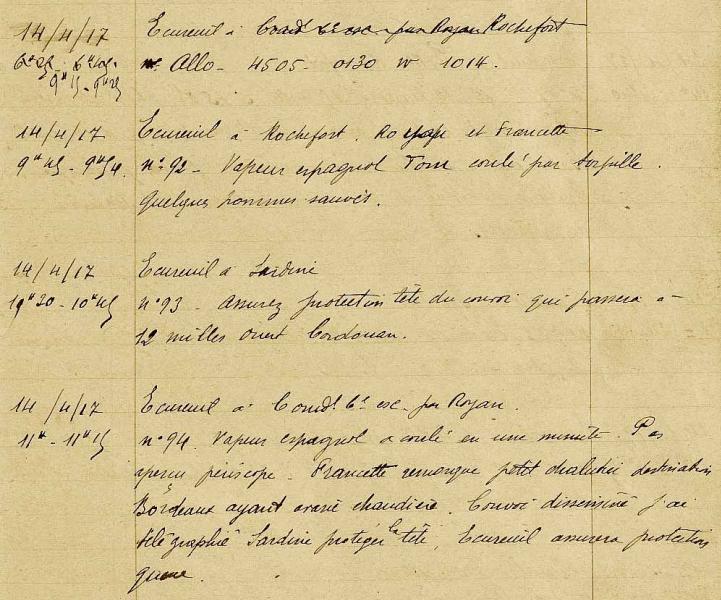 14/4/17 Ecureuil à Comdt 6e esc. par Royan Rochefort
Allo - 4505 - 0130 w 1014.
9h15 - 9h25
14/4/17 Ecureuil à Rochefort. Royan et Francette
9h45 - 9h54. n° 92 - Vapeur espagnol Tom coulé par torpille.
Quelques hommes sauvés.
14/4/17 Ecureuil à Sardine
10h45 n° 93. Assurez protection tête du convoi qui passera à
12 milles Ouest Cordouan.
14/4/17 Ecureuil à Comdt 6e esc. par Royan.
11h - 11h15 n° 94. Vapeur espagnol a coulé en une minute. Pas
aperçu périscope. Francette remorque petit chalutier destination
Bordeaux ayant avarie chaudière. Convoi disséminé j'ai
télégraphié Sardine protéger la tête, Ecureuil assurera protection
queue.